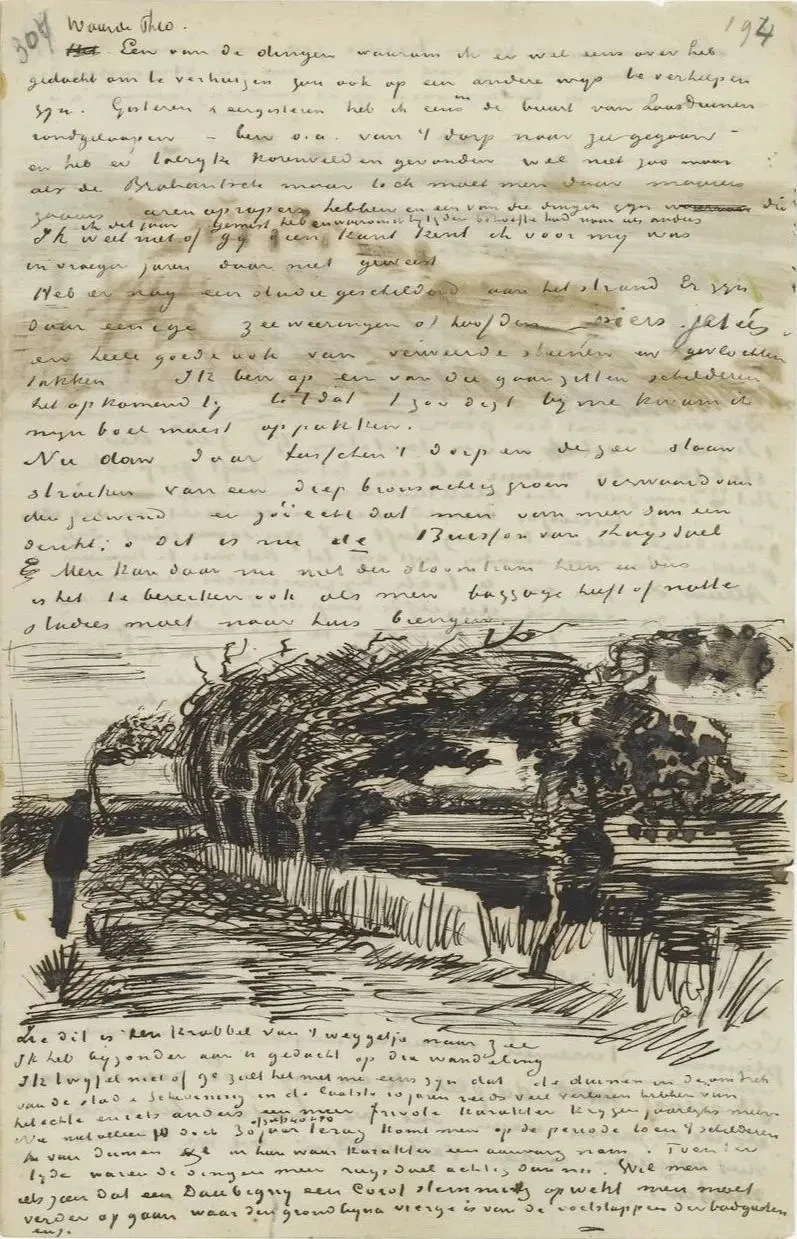 307 Waarde Theo. 194
Een van de dingen waarom ik er wel eens over heb
gedacht om te verhuizen zou ook op een andere wijs te verhelpen
zijn. Gisteren & eergisteren heb ik eens in de buurt van Loosduinen
rondgeloopen – ben o.a. van 't dorp naar zee gegaan –
en heb er talryke korenvelden gevonden wel niet zoo mooi
als de Brabantsche maar toch moet men daar maaiers
zaaiers arenoprapers hebben en een van die dingen zyn die
ik dit jaar gemist heb en waarom ik by tyden behoefte had naar iets anders
Ik weet niet of gy dien kant kent ik voor my was
in vroeger jaren daar niet geweest
Heb er nog een studie geschilderd aan het strand Er zyn
daar eenige zeeweeringen of hoofden piers, jetées,
en heele goede ook van verweerde steenen en gevlochten
takken Ik ben op een van die gaan zitten schilderen
het opkomend ty totdat 't zoo digt by me kwam ik
myn boel moest oppakken.
Nu dan daar tusschen 't dorp en de zee staan
struiken van een diep bronsachtig groen verwaaid van
den zeewind en zóó echt dat men van meer dan een
denkt: o dit is nu de Buisson van Ruysdael
Men kan daar nu met den stoomtram heen en dus
is het te bereiken ook als men baggage heeft of natte
studies moet naar huis brengen.
Zie dit is een krabbel van 't weggetje naar zee
Ik heb byzonder aan u gedacht op die wandeling
Ik twyfel niet of ge zult het met me eens zyn dat de duinen in de omtrek
van de stad & Scheveningen in de laatste 10 jaren reeds veel verloren hebben van
het echte en iets anders een meer frivole karakter krygen jaarlyks meer
Nu niet alleen 10 doch 30 jaar terug komt men op de periode toen 't schilderen
van duinen in hun waar karakter een aanvang nam. Toen ter
tyde waren de dingen meer ruysdaelachtig dan nu. Wil men
iets zien dat een Daubigny een Corot stemming opwekt men moet
verder op gaan waar den grond byna vierge is van de voetstappen der badgasten
enz.